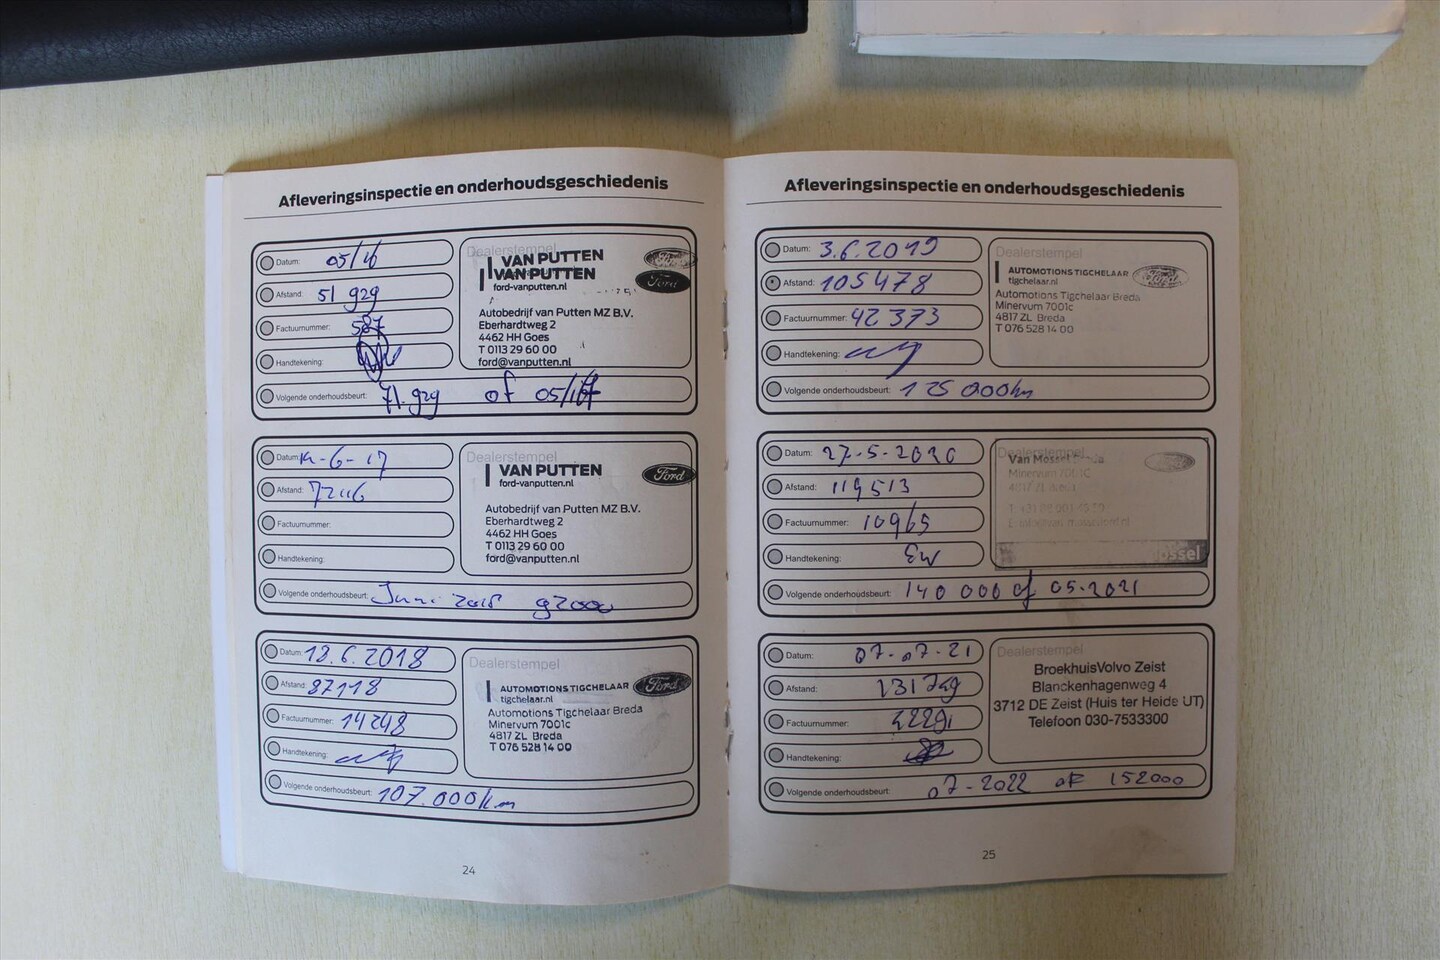 Afleveringsinspectie en onderhoudsgeschiedenis
Datum: 05/16
Afstand: 51 929
Factuurnummer: 587
Handtekening:
Volgende onderhoudsbeurt: 71.929 of 05/17
Dealerstempel
VAN PUTTEN
VAN PUTTEN
ford-vanputten.nl
Ford
Ford
Autobedrijf van Putten MZ B.V.
Eberhardtweg 2
4462 HH Goes
T 0113 29 60 00
ford@vanputten.nl
Datum: -6-17
Afstand:
Factuurnummer:
Handtekening:
Volgende onderhoudsbeurt: Juni 2018 92000
Dealerstempel
VAN PUTTEN
ford-vanputten.nl
Ford
Autobedrijf van Putten MZ B.V.
Eberhardtweg 2
4462 HH Goes
T 0113 29 60 00
ford@vanputten.nl
Datum: 18.6.2018
Afstand: 87118
Factuurnummer: 14248
Handtekening:
Volgende onderhoudsbeurt: 107.000km
Dealerstempel
AUTOMOTIONS TIGCHELAAR
tigchelaar.nl
Ford
Automotions Tigchelaar Breda
Minervum 7001c
4817 ZL Breda
T 076 528 14 00
24
Afleveringsinspectie en onderhoudsgeschiedenis
Datum: 3.6.2019
Afstand: 105478
Factuurnummer: 42373
Handtekening:
Volgende onderhoudsbeurt: 125 000km
Dealerstempel
AUTOMOTIONS TIGCHELAAR
tigchelaar.nl
Ford
Automotions Tigchelaar Breda
Minervum 7001c
4817 ZL Breda
T 076 528 14 00
Datum: 27-5-2020
Afstand: 119513
Factuurnummer: 10965
Handtekening:
Volgende onderhoudsbeurt: 140 000 of 05-2021
Dealerstempel
Van Mossel
Minervum 7001C
4817 ZL Breda
Datum: 07-07-21
Afstand:
Factuurnummer:
Handtekening:
Volgende onderhoudsbeurt: 07-2022 OF 152000
Dealerstempel
BroekhuisVolvo Zeist
Blanckenhagenweg 4
3712 DE Zeist (Huis ter Heide UT)
Telefoon 030-7533300
25